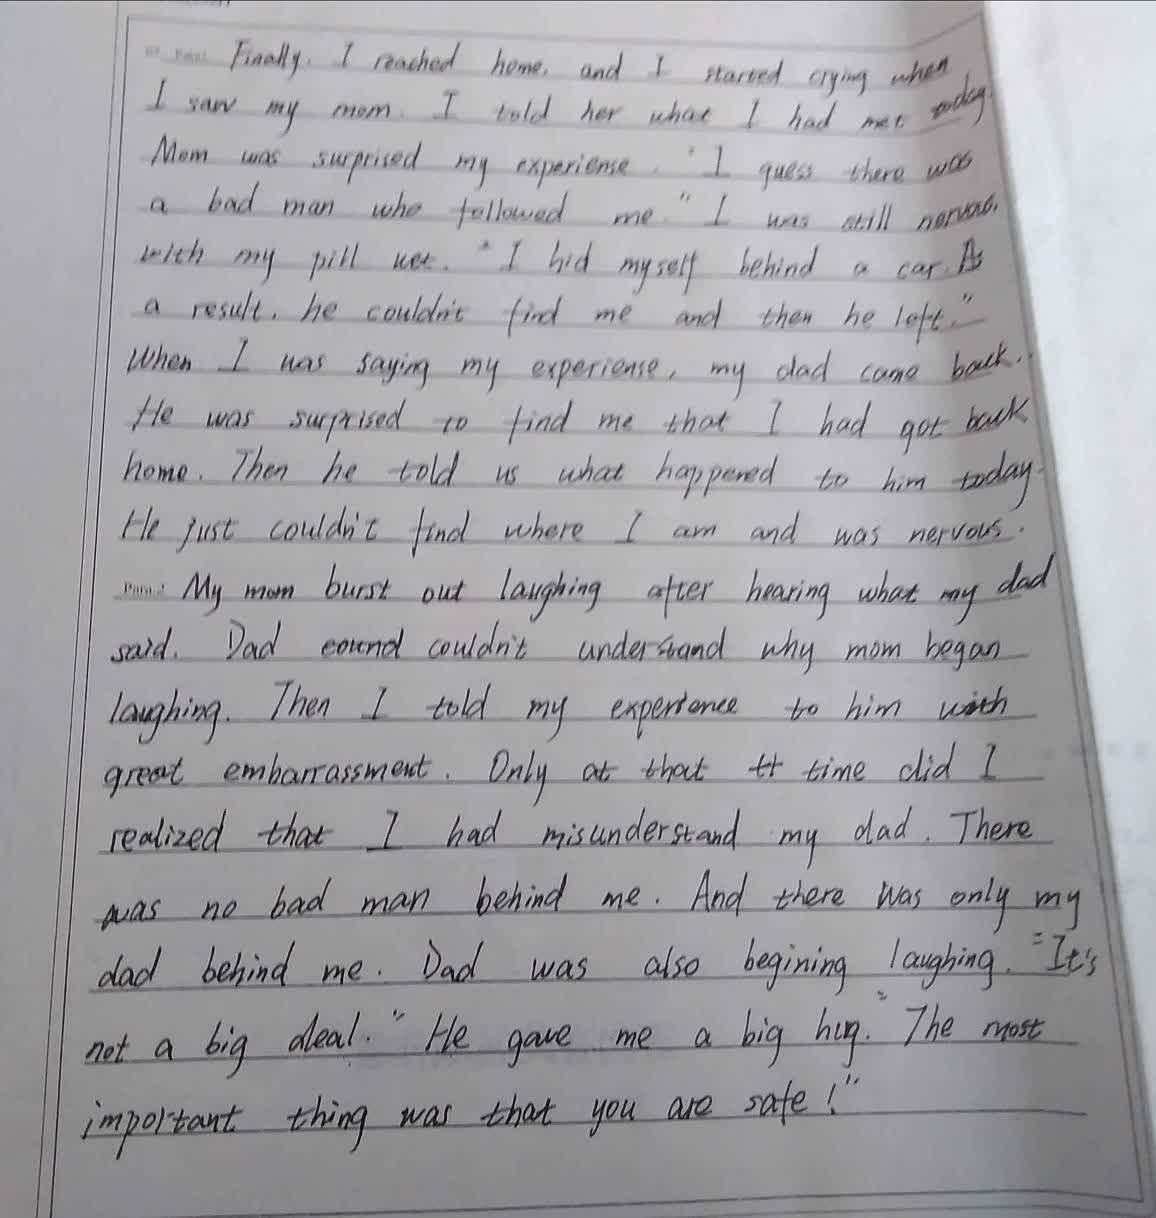 Finally, I reached home, and I started crying when
I saw my mom. I told her what I had met today.
Mom was surprised my experiense. "I guess there was
a bad man who followed me." I was still nervous,
with my pill wet. "I hid myself behind a car. As
a result, he couldn't find me and then he left."
When I was saying my experiense, my dad came back.
He was surprised to find me that I had got back
home. Then he told us what happened to him today.
He just couldn't find where I am and was nervous.
My mom burst out laughing after hearing what my dad
said. Dad couldn't understand why mom began
laughing. Then I told my experience to him with
great embarrassment. Only at that time did I
realized that I had misunderstand my dad. There
was no bad man behind me. And there was only my
dad behind me. Dad was also begining laughing. "It's
not a big deal." He gave me a big hug. "The most
important thing was that you are safe!"